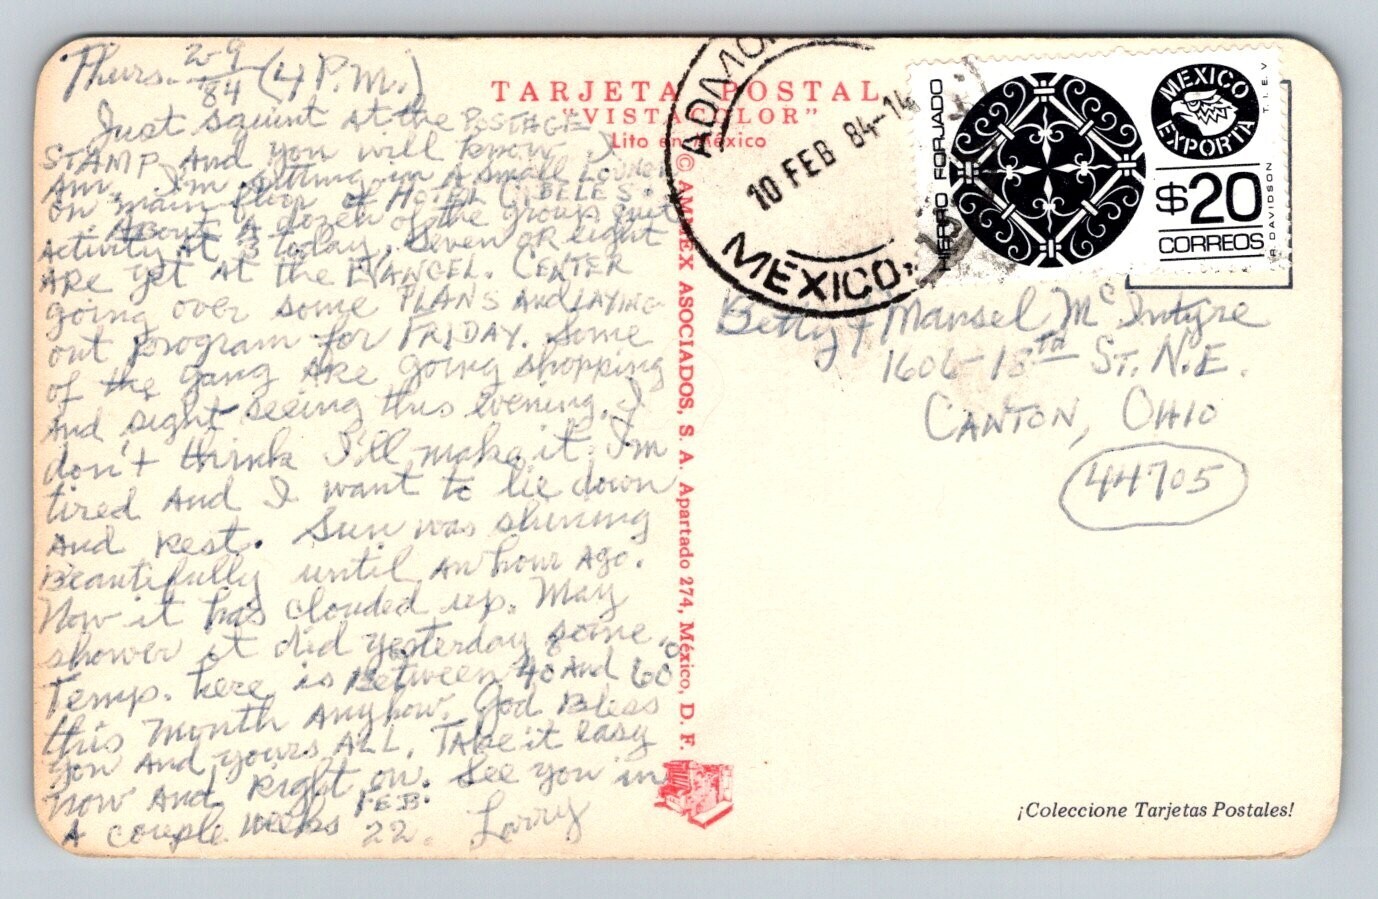 Thurs. 2-9/84 (4 P.M.)
Just squint at the POSTAGE
STAMP and you will know I
am. I'm sitting in a small lounge
on main floor of HOTEL CIBELES.
About a dozen of the group quit
activity at 3 today. Seven or eight
are yet at the EVANGEL. CENTER
going over some PLANS and LAYING
out program for FRIDAY. Some
of the gang are going shopping
and sight seeing this evening. I
don't think I'll make it. I'm
tired and I want to lie down
and rest. Sun was shining
beautifully until an hour ago.
Now it has clouded up. May
shower it did yesterday some.
Temp. here is between 40 and 60
this month anyhow. God Bless
you and yours ALL. Take it easy
now and right on. See you in
a couple weeks FEB. 22. Larry
TARJETA POSTAL
"VISTACOLOR"
Lito en México
© AMMEX ASOCIADOS, S. A. Apartado 274, México, D. F.
ADMO
10 FEB 84-14
MEXICO,
HIERRO FORJADO
MEXICO
EXPORTA
$20
CORREOS
T.I.E.V
R. DAVIDSON
Betty & Mansel McIntyre
1606-18th St. N.E.
CANTON, OHIO
44705
¡Coleccione Tarjetas Postales!